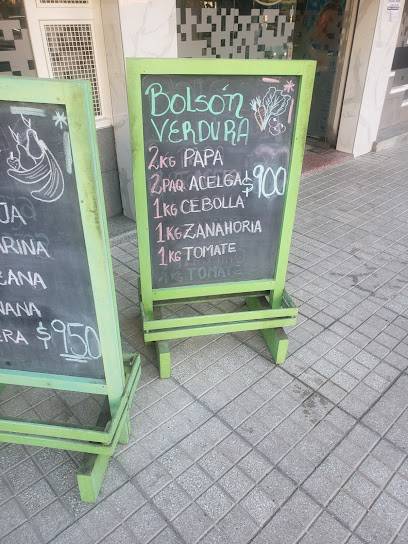 Bolsón
VERDURA
2KG PAPA
2PAQ. ACELGA $900
1KG CEBOLLA
1KG ZANAHORIA
1KG TOMATE
TOMATE
JA
ARINA
ANA
ERA $950